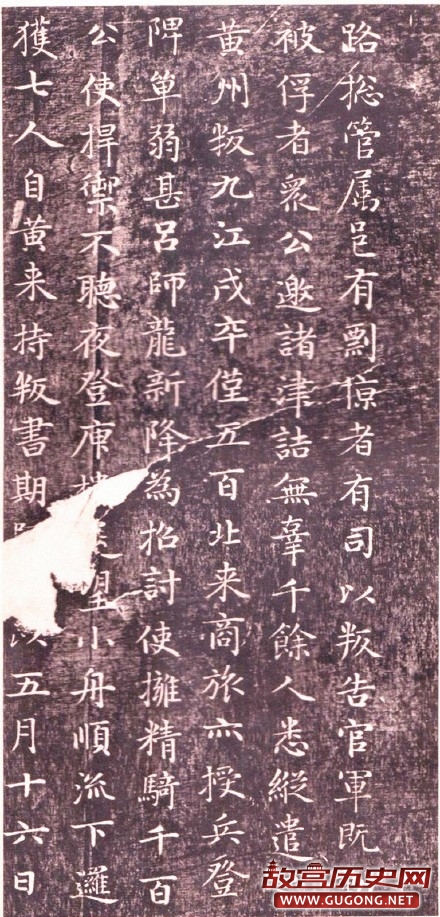 路捴管属邑有剽掠者有司以叛告官軍既
被俘者衆公邀諸津詰無辜千餘人悉縱遣
黄州叛九江戍卒僅五百北来商旅亦授兵登
陴单弱甚吕師龍新降為招討使擁精騎千百
公使捍禦不聽夜登庾望小舟順流下邏
獲七人自黄来持叛書期以五月十六日
故宫历史网
WWW.GUGONG.NET